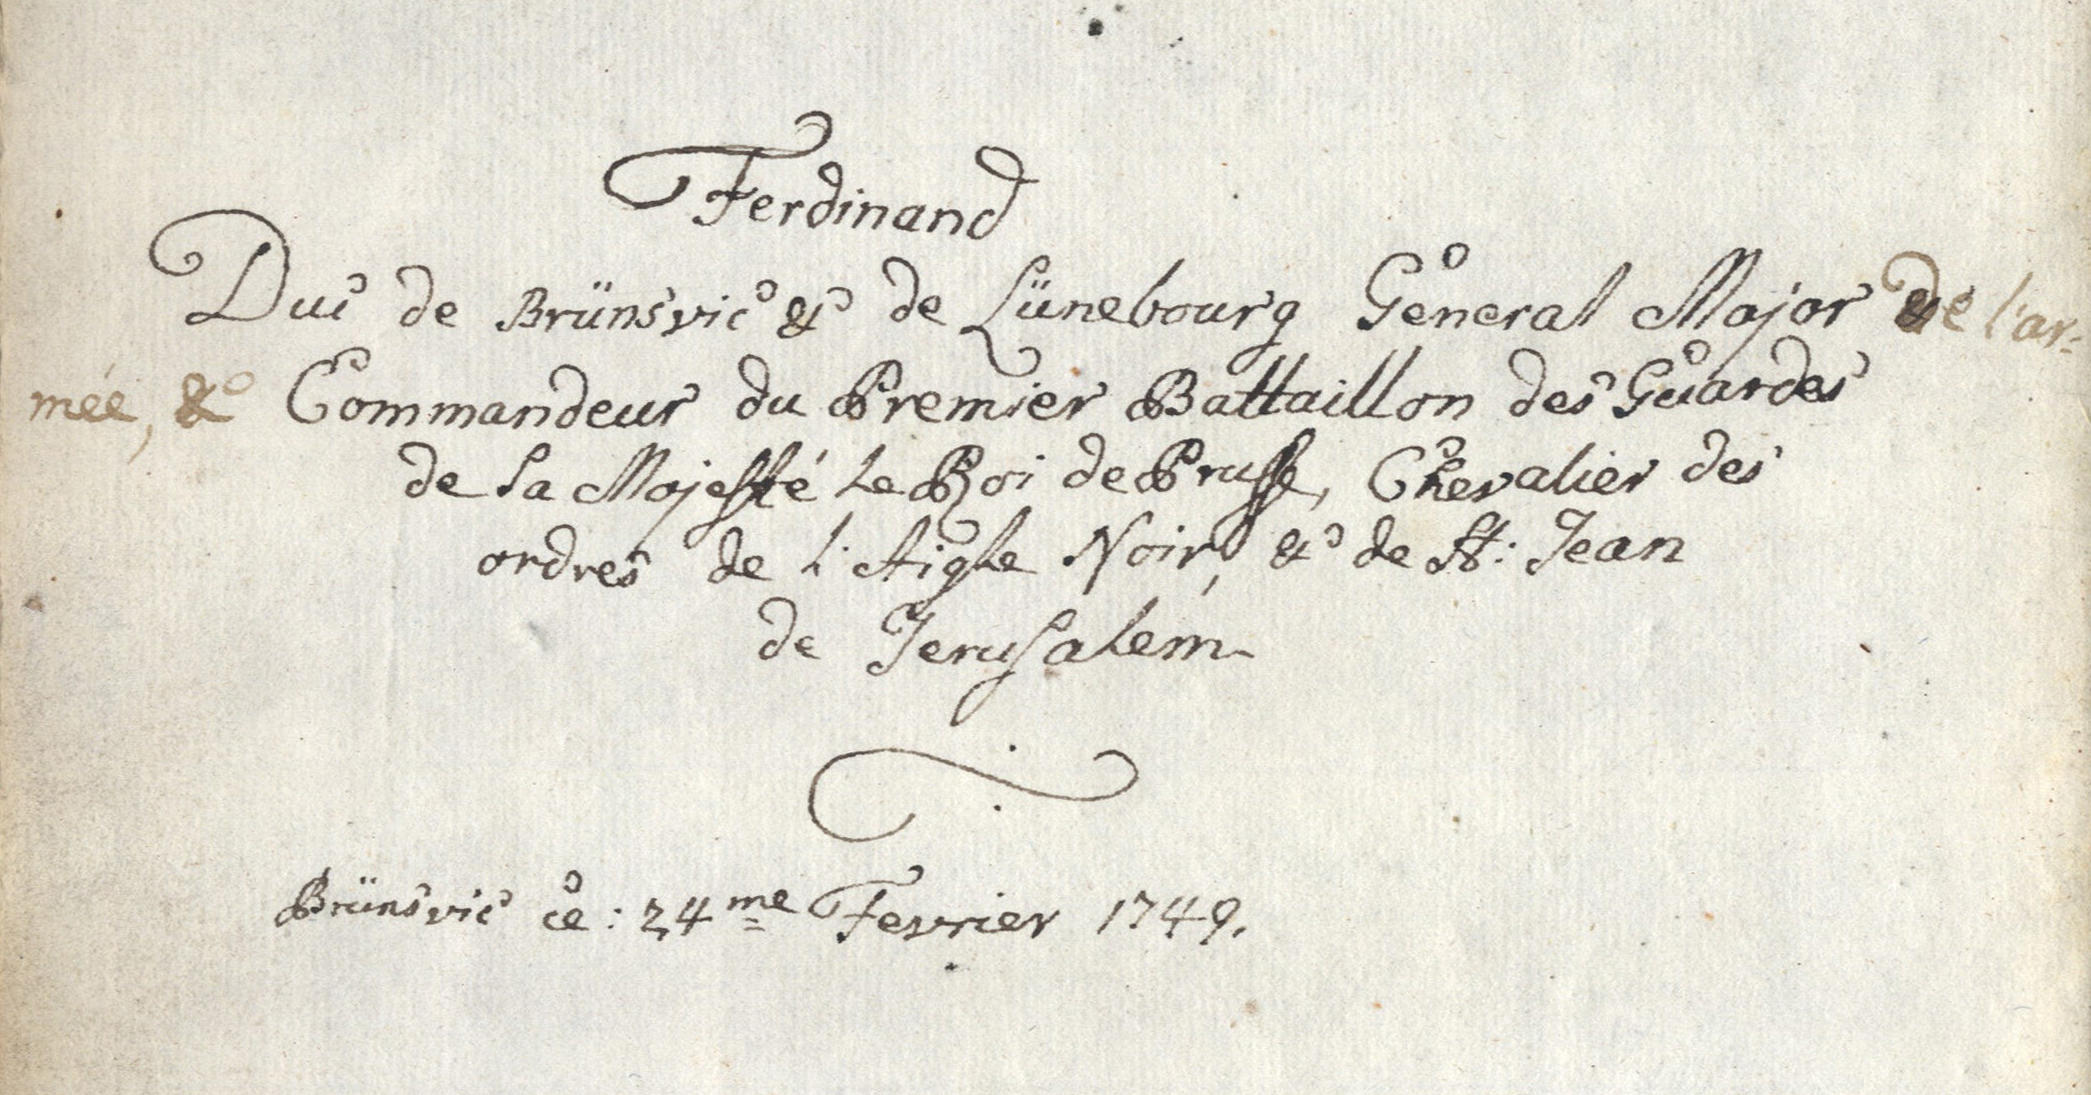 Ferdinand
Duc de Brünsvic & de Lünebourg General Major de l'ar=
mée, & Commandeur du Premier Battaillon des Guardes
de Sa Majesté le Roi de Prusse, Chevalier des
ordres de l'Aigle Noir, & de St: Jean
de Jerusalem
Brünsvic ce: 24me Fevrier 1749.